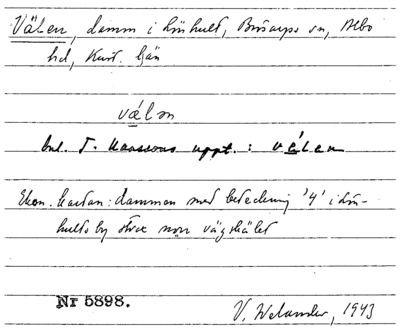 Välen, damm i Linhult, Brösarps sn, Albo
hd, Krist. län
välen
enl. T. Maassons uppt. : välen
Ekon. kartan: dammen med beteckning '4' i Lin-
hults by strax norr vägskälet
Nr 5898.
V. Welander, 1943